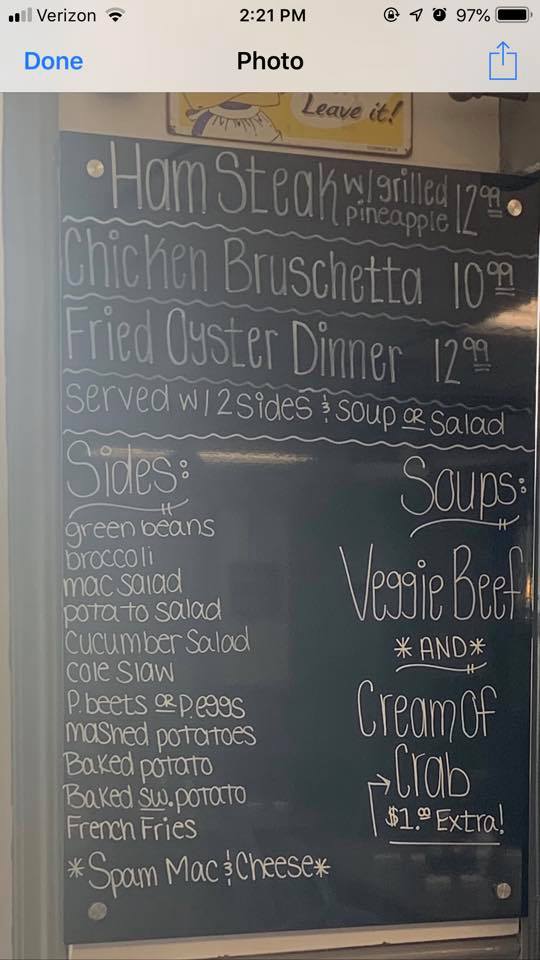 Verizon 2:21 PM 97%
Done Photo
Leave it!
Ham Steak w/grilled pineapple 12.99
Chicken Bruschetta 10.99
Fried Oyster Dinner 12.99
served w/2 sides & soup or salad
Sides:
green beans
broccoli
mac salad
potato salad
cucumber salad
cole slaw
P. beets or P. eggs
mashed potatoes
Baked potato
Baked sw. potato
French Fries
*Spam Mac & Cheese*
Soups:
Veggie Beef
*AND*
Cream Of
Crab
$1.00 Extra!